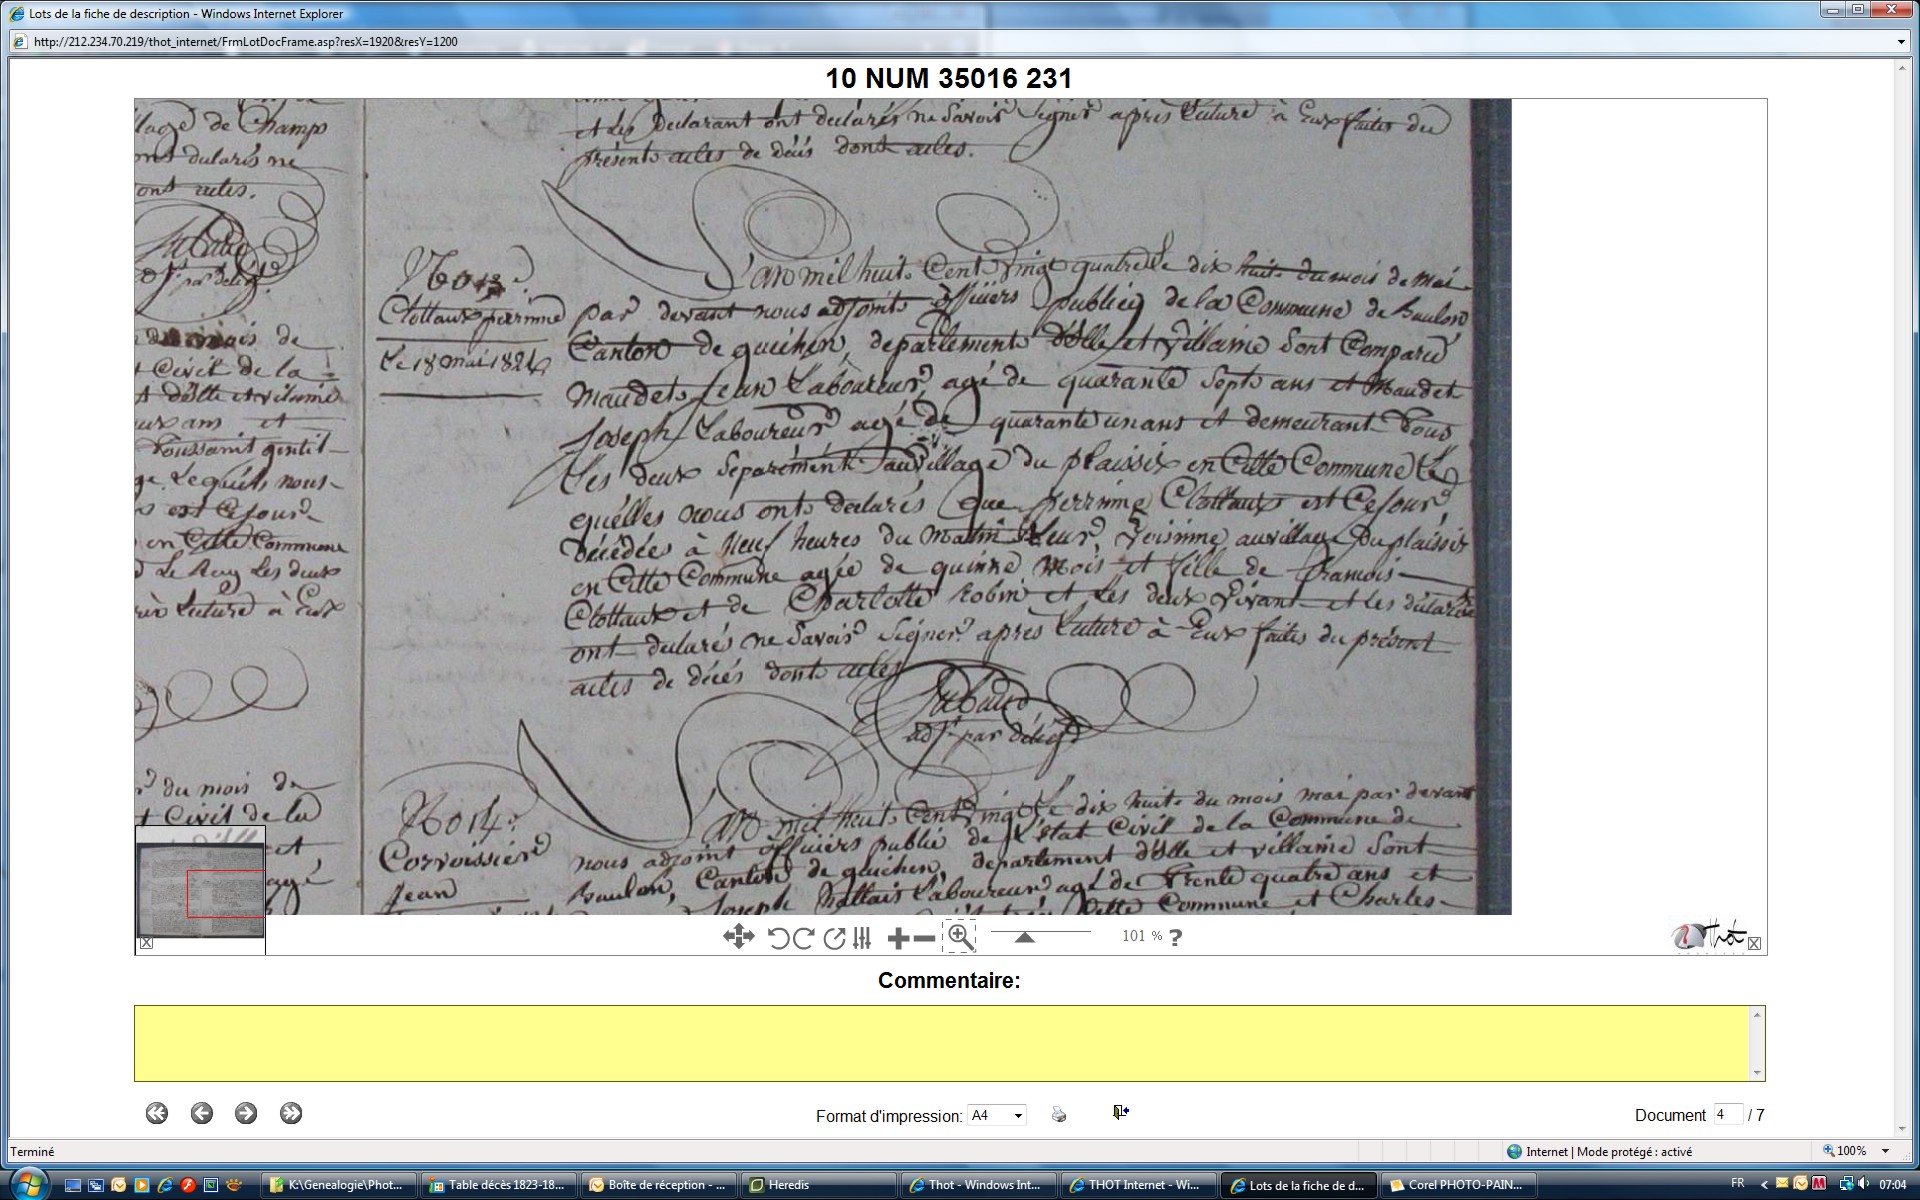 Lots de la fiche de description - Windows Internet Explorer
http://212.234.70.219/thot_internet/FrmLotDocFrame.asp?resX=1920&resY=1200
10 NUM 35016 231
llage de Champs
ont dularés ne
ont actes.
mois de
t Civil de la
t d'ille et vilaine
eux ans et
toussaint gentil-
ge Lequels nous-
s est Cejour
en Cette Commune
Le Roy Les deux
rès Luture à Eux
du mois de
t Civil de la
et
agé
et Les Declarant ont declarés ne Savoir Signer après Luture à Eux faites du
présents actes de décès dont actes.
No 13
Clottaux perrinne
Le 18 mai 1824
L'an mil huit Cent vingt quatre Le dix huit du mois de mai
par devant nous adjoints officiers publicq de la Commune de Baulon
Canton de guichen, departement d'ille et villaine Sont Comparu
Maudet Jean Laboureur, agé de quarante Septs ans et Maudet
Joseph Laboureur agé de quarante un ans et demeurant tous
Les deux Separément au village du plaissix en Cette Commune Le
quelles nous ont declarés que perrinne Clottaux est Cejour
décédées à Neuf heures du matin Leur Voisinne au village du plaissix
en Cette Commune agée de quinze Mois et fille de francois
Clottaux et de Charlotte Robin et Les deux Vivant et Les déclarés
ont declarés ne Savoir Signer après Luture à Eux faites du présent
actes de décès dont actes
adjt par délégé
No 14
Corvoissier
Jean
L'an mil huit Cent vingt Le dix huit du mois mai par devant
nous adjoint officiers publié de L'état Civil de la Commune de
Baulon, Canton de guichen, departement d'ille et villaine Sont
Joseph hallais Laboureur agé de trente quatre ans et
Cette Commune et Charles-
101 %
?
Thot
Commentaire:
Format d'impression: A4
Document 4 / 7
Terminé
Internet | Mode protégé : activé
100%
K:\Genealogie\Phot...
Table décès 1823-18...
Boîte de réception - ...
Heredis
Thot - Windows Int...
THOT Internet - Wi...
Lots de la fiche de d...
Corel PHOTO-PAIN...
FR
07:04